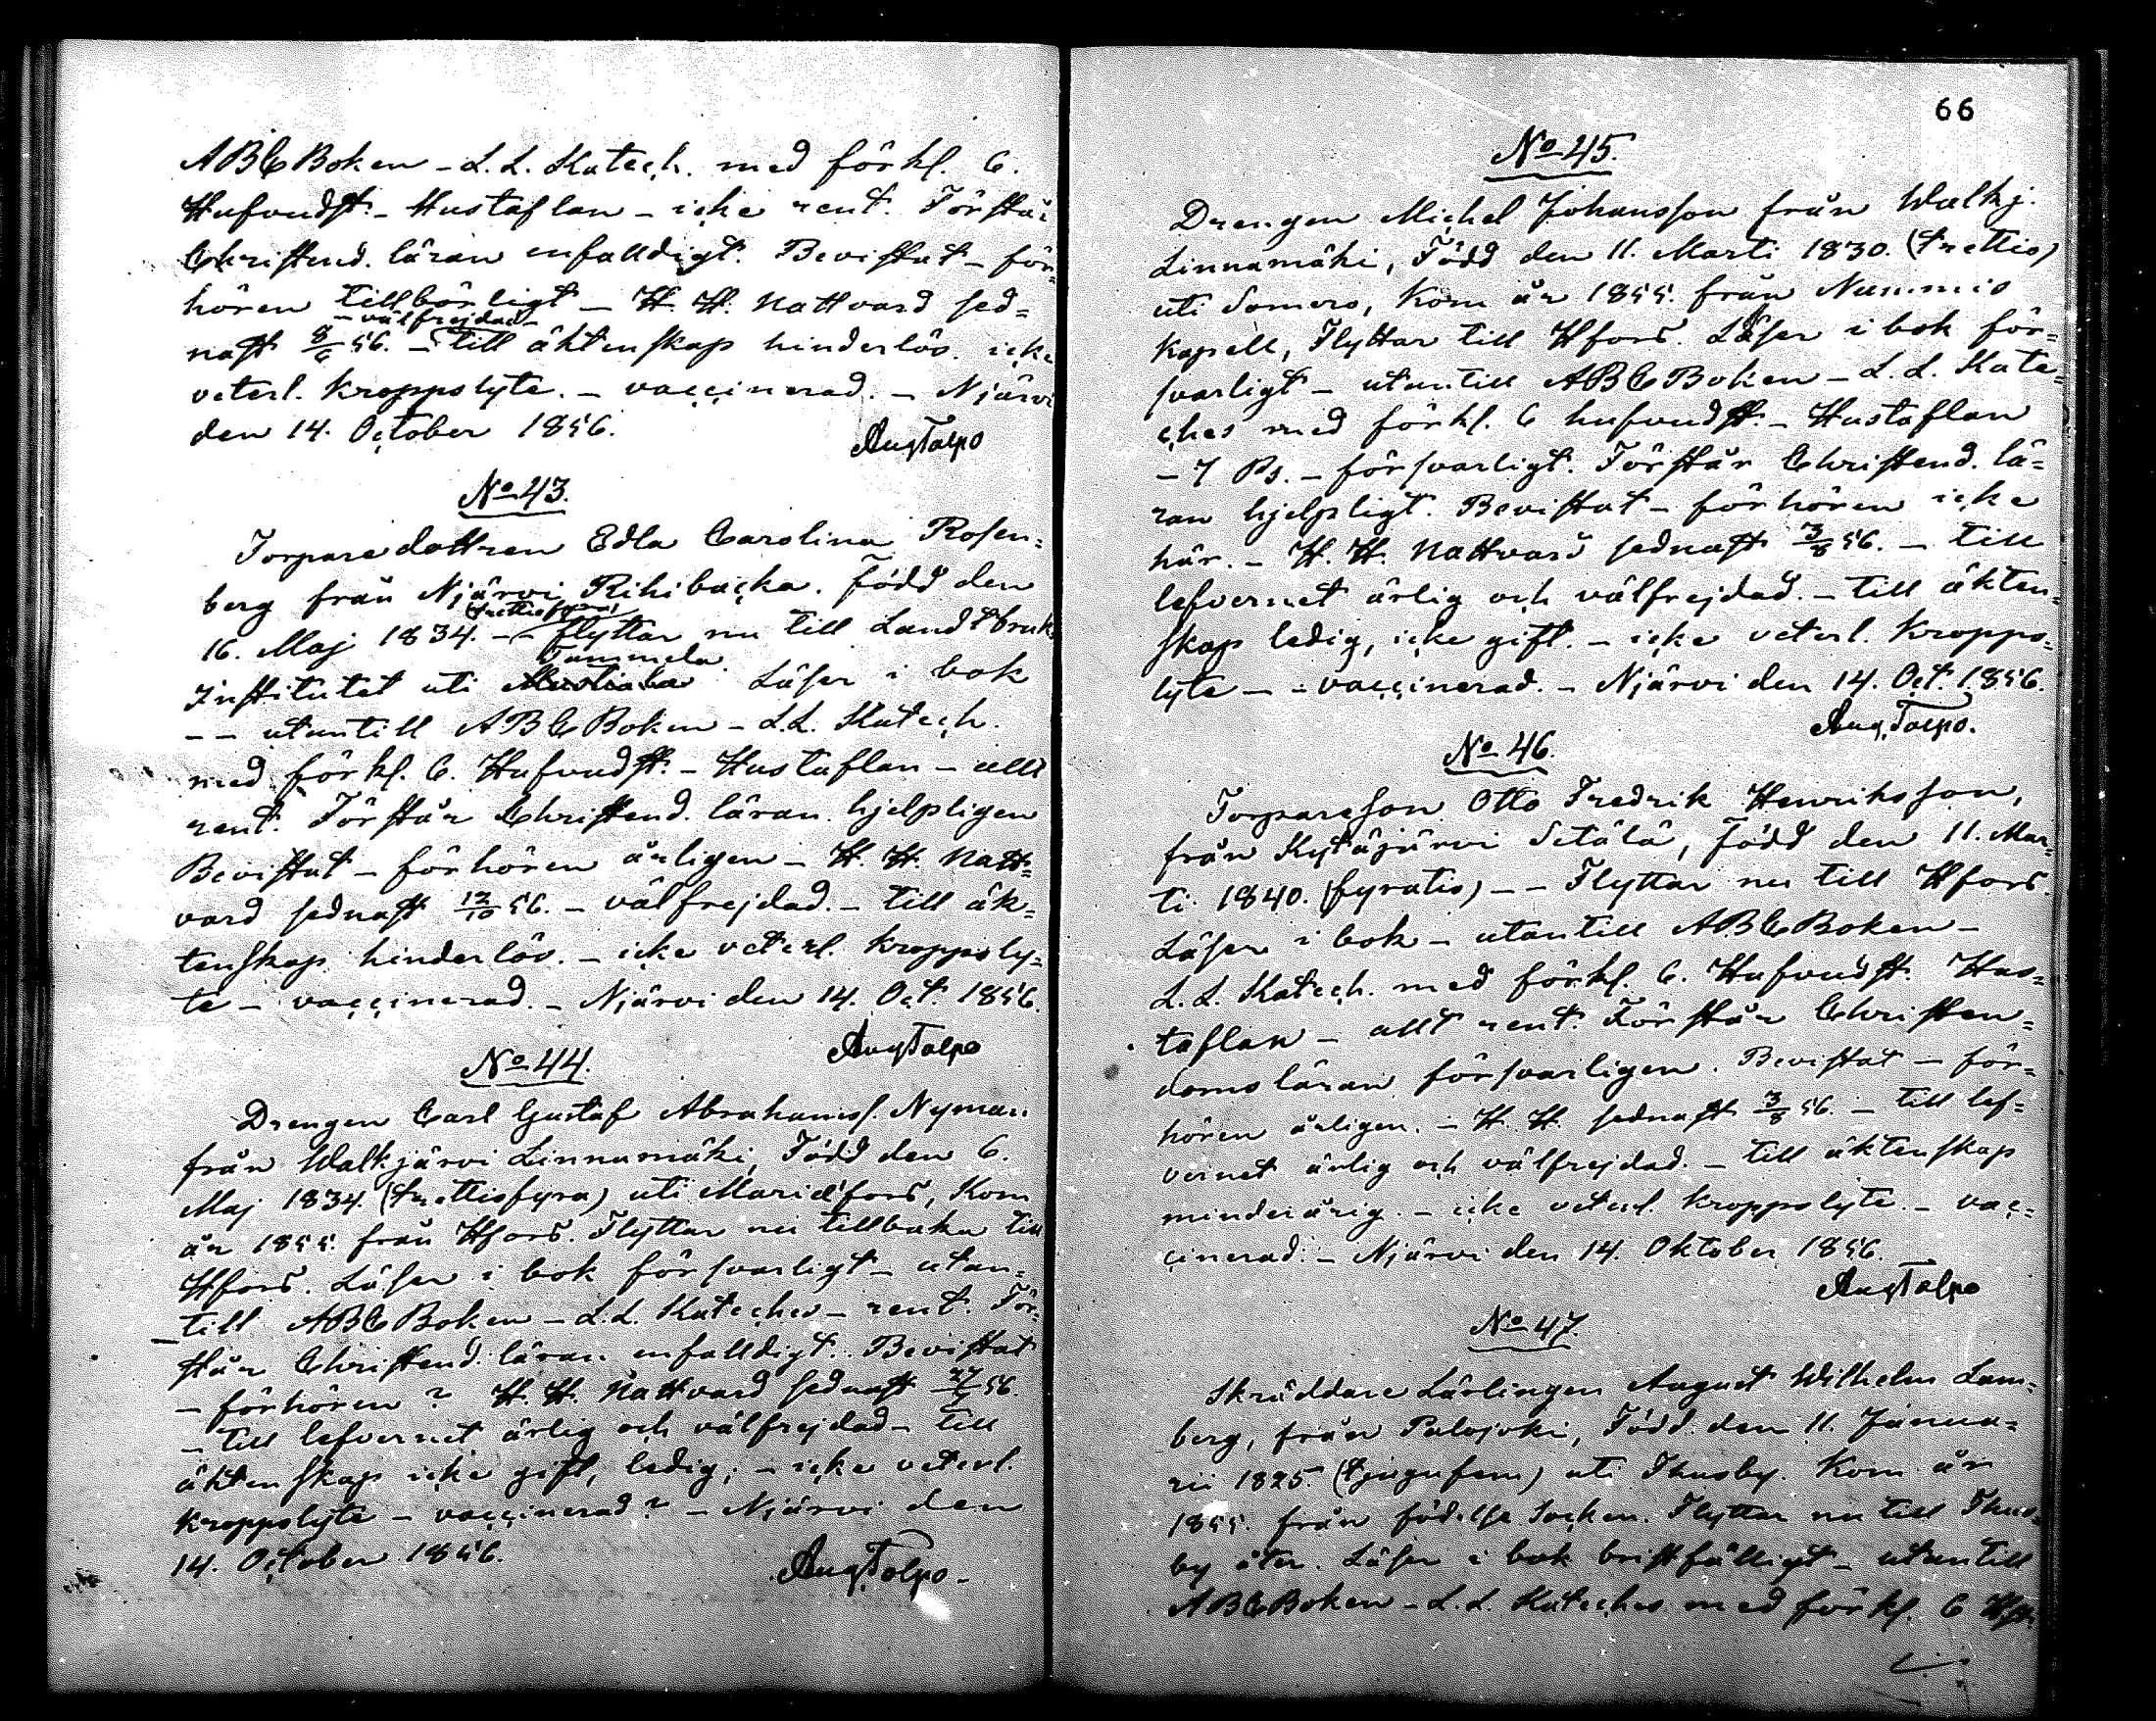 ABC Boken - L. L. Katech. med förkl. 6.
Hufvudst. - Hustaflan - icke rent. Förstår
Christend. läran enfalldigt. Bevistat - för=
hören tillbörligt - H. H. Nattvard sed=
- välfrejdad -
nast 8/6 56. - till äktenskap hinderlös. icke
veterl. kroppslyte. - vaccinerad. - Njärvi
den 14. October 1856.
Aug Talpo
No 43.
Torparedottren Edla Carolina Rosen=
berg från Njärvi Rihibacka. Född den
(trettiofyra)
16. Maj 1834. - - flyttar nu till Landtbruk
Tammela.
Institutet uti Mustiala Läser i bok
- - utantill ABC Boken - L. L. Katech.
med förkl. 6. Hufvudst. - Hustaflan - allt
rent. Förstår Christend. läran hjelpligen
Bevistat - förhören årligen - H. H. Natt=
vard sednast 12/10 56. - välfrejdad. - till äk=
tenskap hinderlös. - icke veterl. kroppsly=
te - vaccinerad. - Njärvi den 14. Oct. 1856.
Aug Talpo
No 44.
Drengen Carl Gustaf Abrahamss. Nyman
från Walkjärvi Linnamäki, Född den 6.
Maj 1834. (trettiofyra) uti Mariæfors, Kom
år 1855. från Hfors. Flyttar nu tillbaka till
Hfors. Läser i bok försvarligt - utan=
till ABC Boken - L. L. Kateches - rent. För=
står Christend. läran enfalldigt. Bevistat
- förhören? H. H. Nattvard sednast 56.
- till lefvernet ärlig och välfrejdad - till
äktenskap icke gift, ledig; - icke veterl.
kroppslyte - vaccinerad? - Njärvi den
14. October 1856.
Aug Talpo -
66
No 45.
Drengen Michel Johansson från Walkj.
Linnamäki, Född den 11. Marti 1830. (trettio)
uti Somero, Kom år 1855. från Nummis
Kapell, Flyttar till Hfors. Läser i bok för=
svarligt - utantill ABC Boken - L. L. Kate=
ches med förkl. 6 hufvudst. - Hustaflan
- 7 Ps. - försvarligt. Förstår Christend. lä=
ran hjelpligt. Bevistat - förhören icke
här. - H. H. Nattvard sednast 3/8 56. - till
lefvernet ärlig och välfrejdad. - till äkten=
skap ledig, icke gift. - icke veterl. kropps=
lyte - - vaccinerad. - Njärvi den 14. Oct. 1856.
Aug. Talpo.
No 46.
Torpareson Otto Fredrik Henriksson,
från Kytäjärvi Setälä, född den 11. Mar=
ti 1840. (fyratio) - - Flyttar nu till Hfors.
Läser i bok - utantill ABC Boken -
L. L. Katech. med förkl. 6. Hufvudst. Hus=
taflan - allt rent. Förstår Christen=
doms läran försvarligen. Bevistat - för=
hören årligen. - H. H. sednast 3/8 56. - till lef=
vernet ärlig och välfrejdad. - till äktenskap
minderårig. - icke veterl. kroppslyte. - vac=
cinerad. - Njärvi den 14. Oktober 1856.
Aug Talpo
No 47.
Skräddare Lärlingen August Wilhelm Lam=
berg, från Palojoki, Född den 11. Janua=
rii 1825. (tjugufem) uti Thusby. Kom år
1855. från födelse Socken. Flyttar nu till Thus=
by åter. Läser i bok bristfälligt - utantill
ABC Boken - L. L. Kateches med förkl. 6 Hfst.